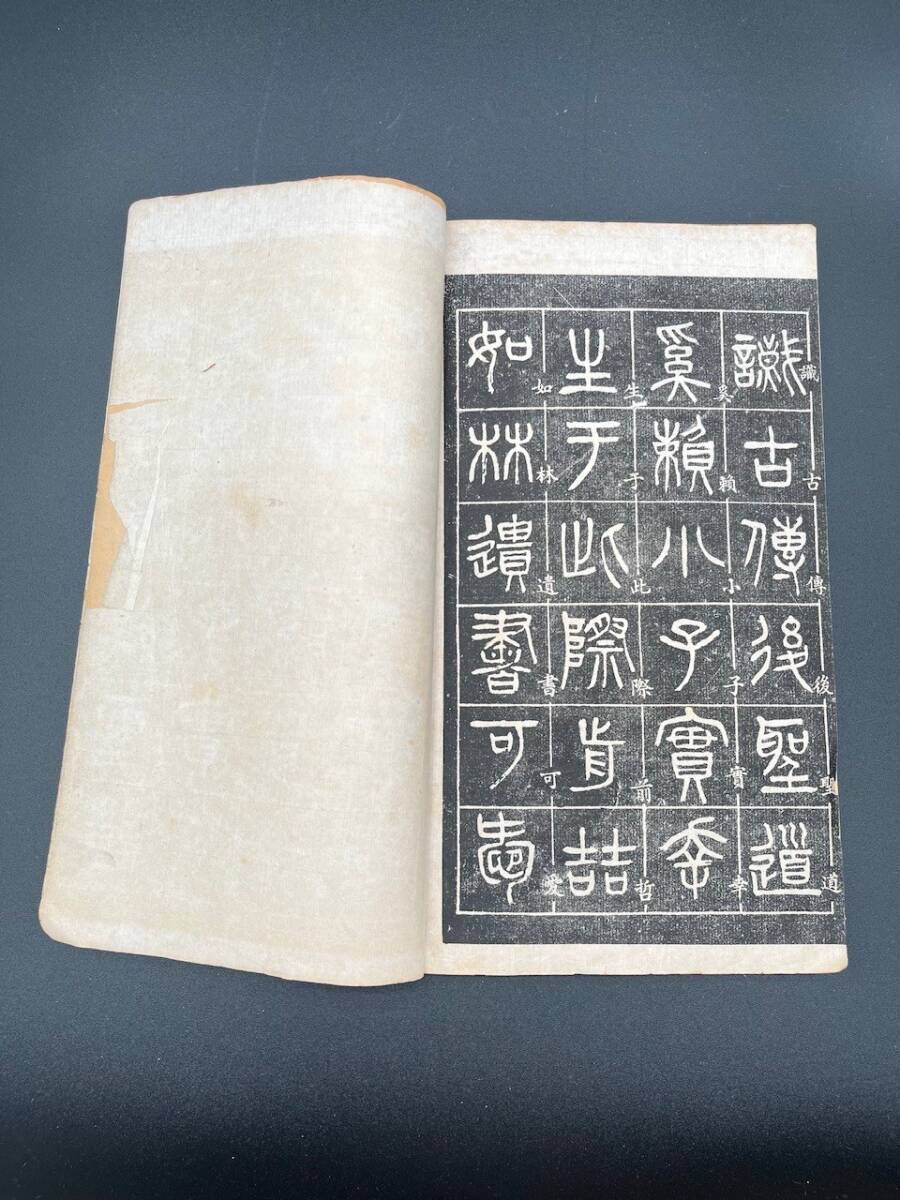 識古傳後聖道
識古傳後聖道
奚賴小子實幸
奚賴小子實幸
生于此際前哲
生于此際前哲
如林遺書可愛
如林遺書可愛